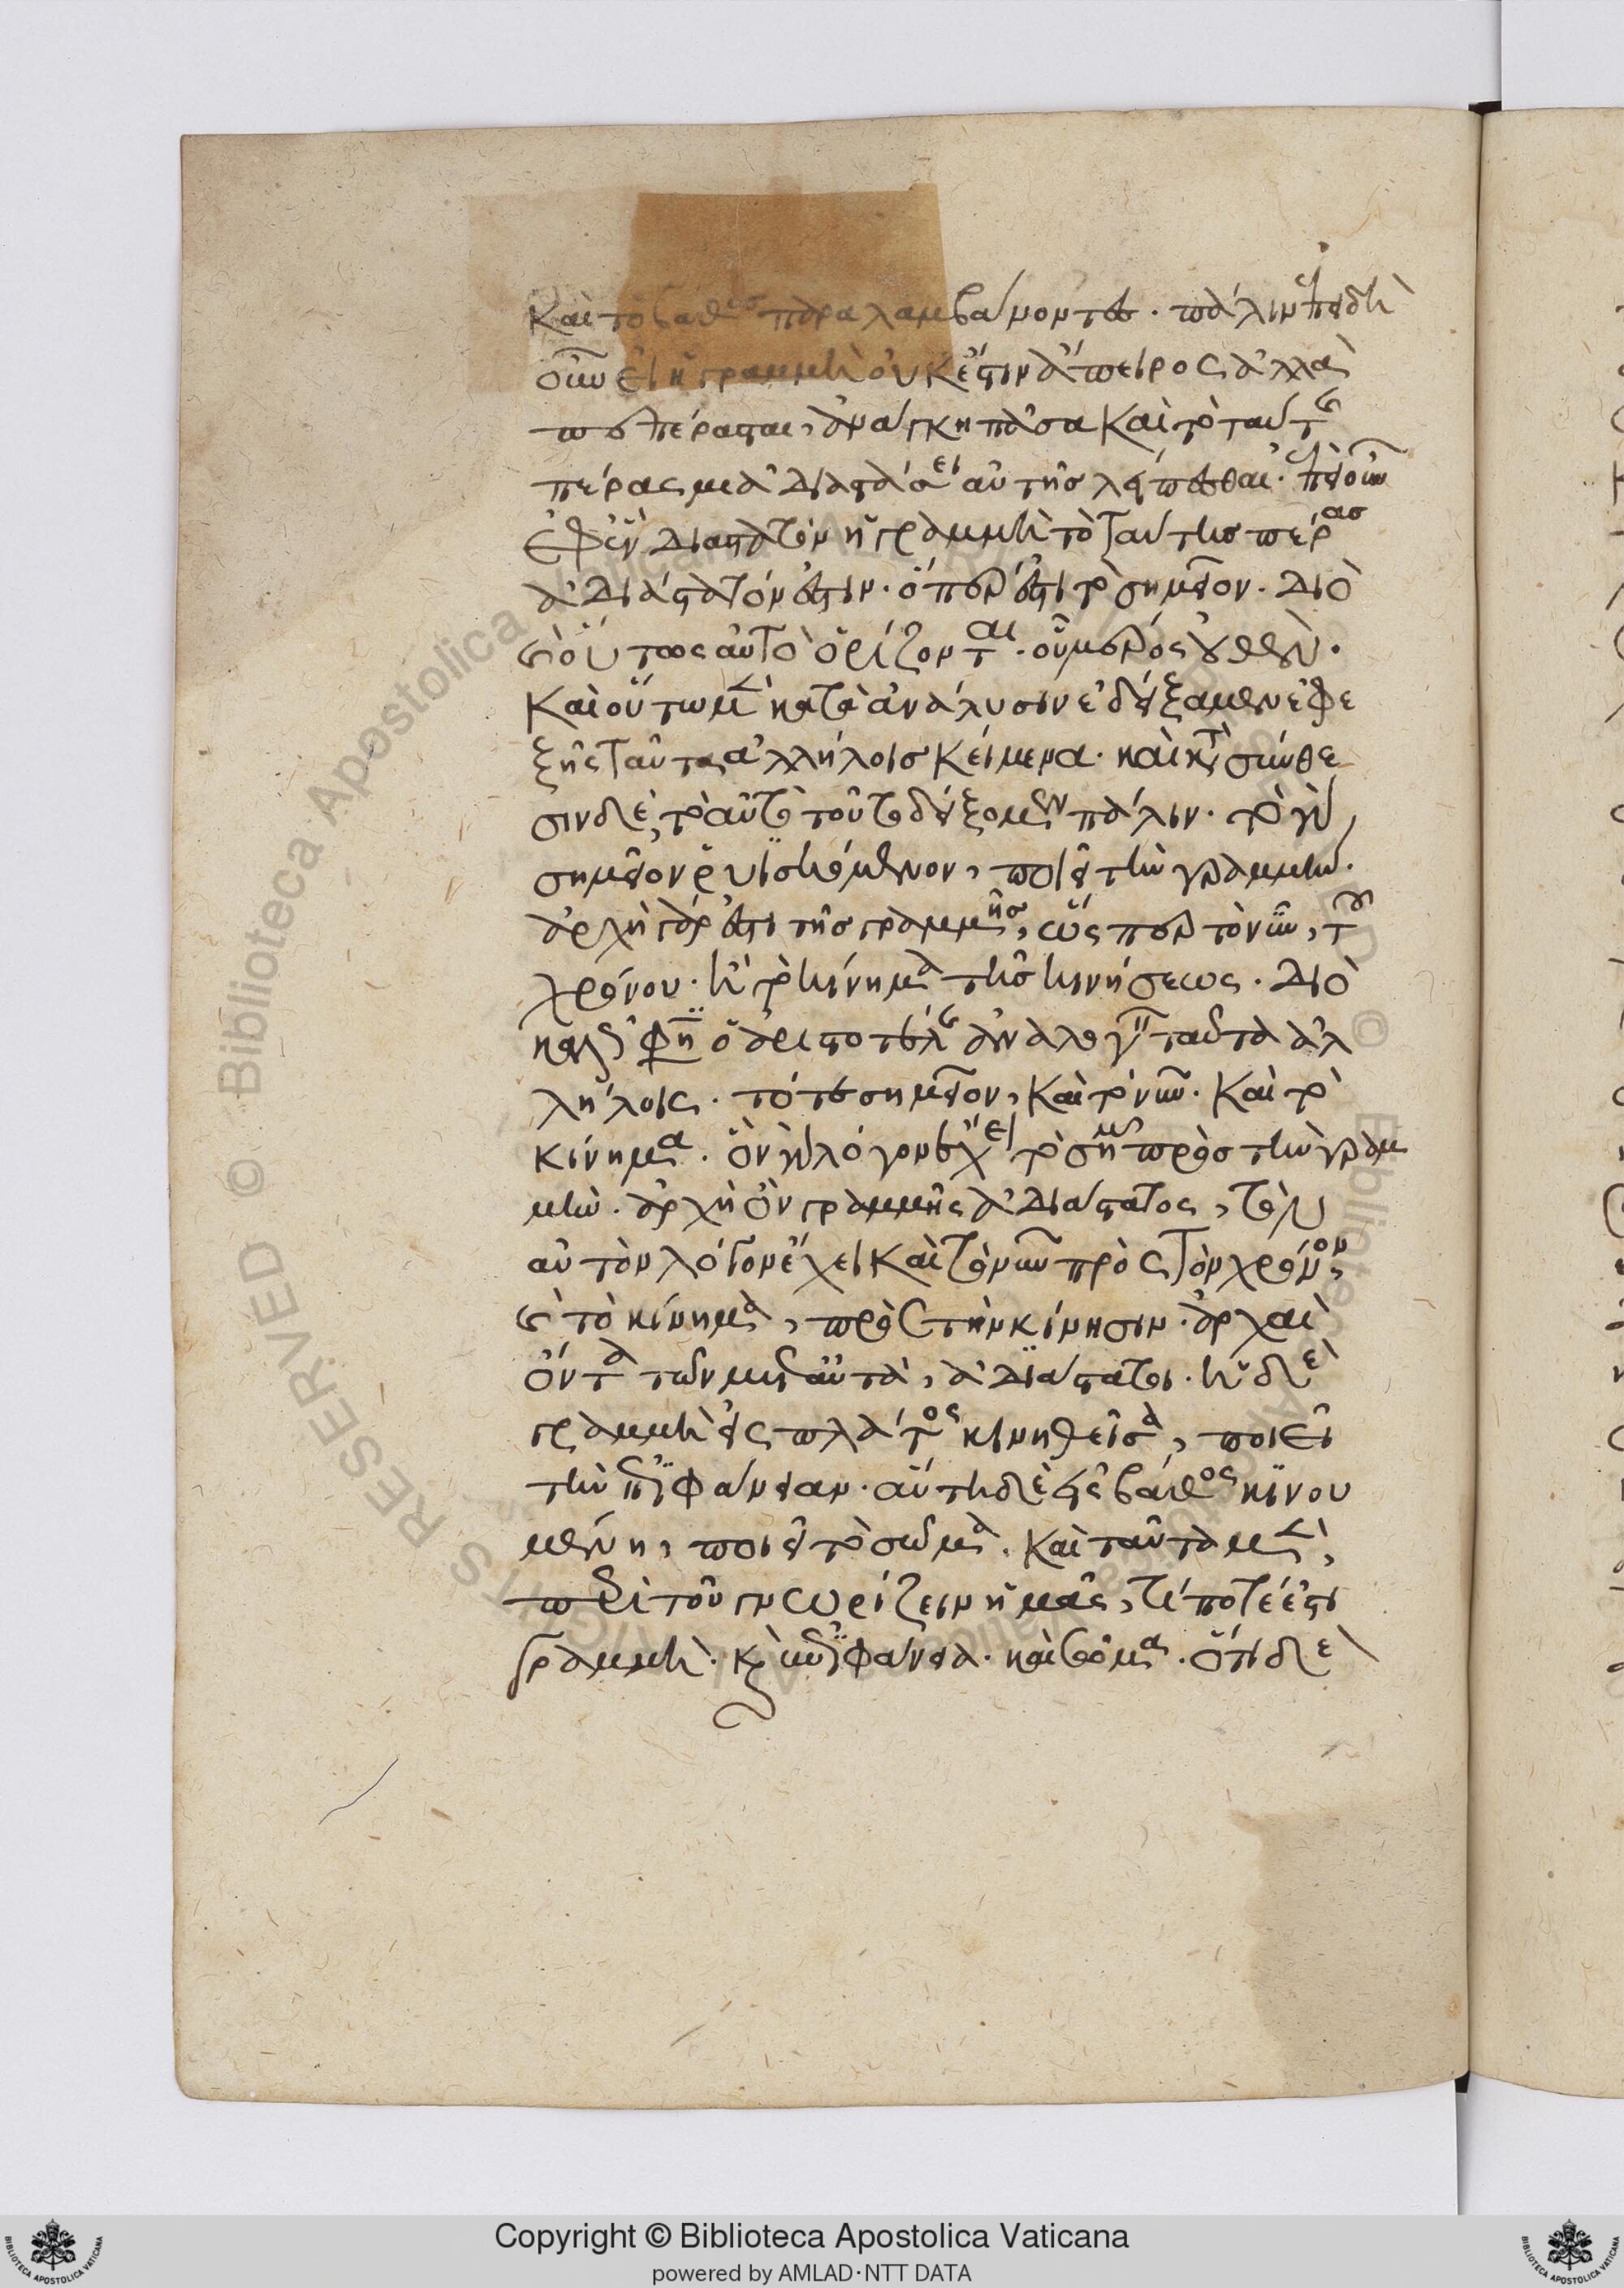 καὶ τὸ βάθος παραλαμβάνοντες. πάλιν ἐπειδὴ
οὖν εἰ ἡ γραμμὴ οὐκ ἔστιν ἄπειρος ἀλλὰ
πεπέρασται, ἀνάγκη πᾶσα καὶ τὸ ταύτης
πέρας μιᾷ διαστάσει αὐτῆς λείπεσθαι. ἐπεὶ οὖν
ἐφ' ἓν διαστατὸν ἡ γραμμὴ τὸ ταύτης πέρας
ἀδιάστατόν ἐστιν. ὅπερ ἐστὶ τὸ σημεῖον. διὸ
καὶ οὕτως αὐτὸ ὁρίζονται. οὗ μέρος οὐθέν.
καὶ οὕτω μὲν κατὰ ἀνάλυσιν ἐδείξαμεν ἐφε
ξῆς ταῦτα ἀλλήλοις κείμενα. καὶ κατὰ σύνθε
σιν δὲ, τὸ αὐτὸ τοῦτο δείξομεν πάλιν. τὸ γὰρ
σημεῖον ῥυϊσκόμενον, ποιεῖ τὴν γραμμήν.
ἀρχὴ γάρ ἐστι τῆς γραμμῆς, ὥσπερ τὸ νῦν, τοῦ
χρόνου. ἢ τὸ κίνημα τῆς κινήσεως. διὸ
καί φησιν ὁ ἀριστοτέλης ἀναλογεῖν ταῦτα ἀλ
λήλοις. τό τε σημεῖον, καὶ τὸ νῦν. καὶ τὸ
κίνημα. ὃν γὰρ λόγον ἔχει τὸ σημεῖον πρὸς τὴν γραμ
μὴν. ἀρχὴ ὂν γραμμῆς ἀδιάστατος, τὸν
αὐτὸν λόγον ἔχει καὶ τὸ νῦν πρὸς τὸν χρόνον,
καὶ τὸ κίνημα, πρὸς τὴν κίνησιν. ἀρχαὶ
ὄντα τῶν μετ' αὐτὰ, ἀδιάστατοι. ἡ δὲ
γραμμὴ εἰς πλάτος κινηθεῖσα, ποιεῖ
τὴν ἐπιφάνειαν. αὕτη δὲ εἰς βάθος κινου
μένη, ποιεῖ τὸ σῶμα. καὶ ταῦτα μὲν,
περὶ τοῦ γνωρίζειν ἡμᾶς, τί ποτέ ἐστι
γραμμὴ. καὶ ἐπιφάνεια. καὶ σῶμα. ὅτι δὲ
Copyright © Biblioteca Apostolica Vaticana
powered by AMLAD·NTT DATA